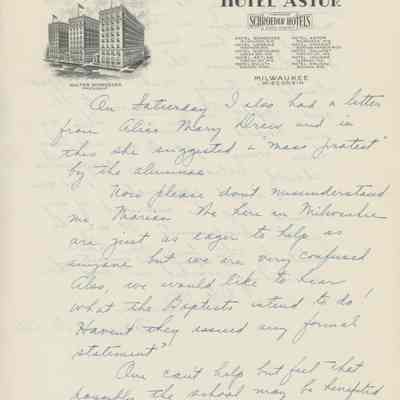 HOTEL ASTOR
SCHROEDER HOTELS
WALTER SCHROEDER
PRESIDENT
MILWAUKEE
WISCONSIN
On Saturday I also had a letter
from Alice Mary Drew and in
this she suggested a "mass protest"
by the alumnae.
Now please don't misunderstand
me Marian. We here in Milwaukee
are just as eager to help as
anyone but we are very confused
Also, we would like to hear
what the Baptists intend to do!
Haven't they issued any formal
statement?
One can't help but feel that
possibly the school may be benefited